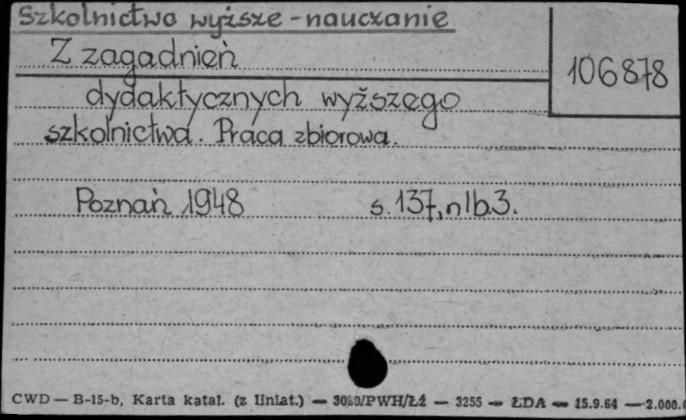 Szkolnictwo wyższe - nauczanie
Z zagadnień
106878
dydaktycznych wyższego
szkolnictwa. Praca zbiorowa.
Poznań 1948 s. 137, nlb. 3.
CWD — B-15-b, Karta katal. (z liniat.) — 3020/PWH/Łź — 3255 — ŁDA — 15.9.64 — 2.000.